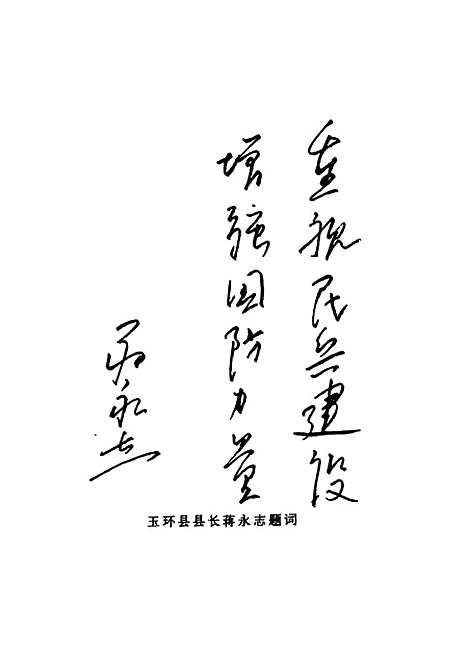 重视民兵建设
增强国防力量
蒋永志
玉环县县长蒋永志题词